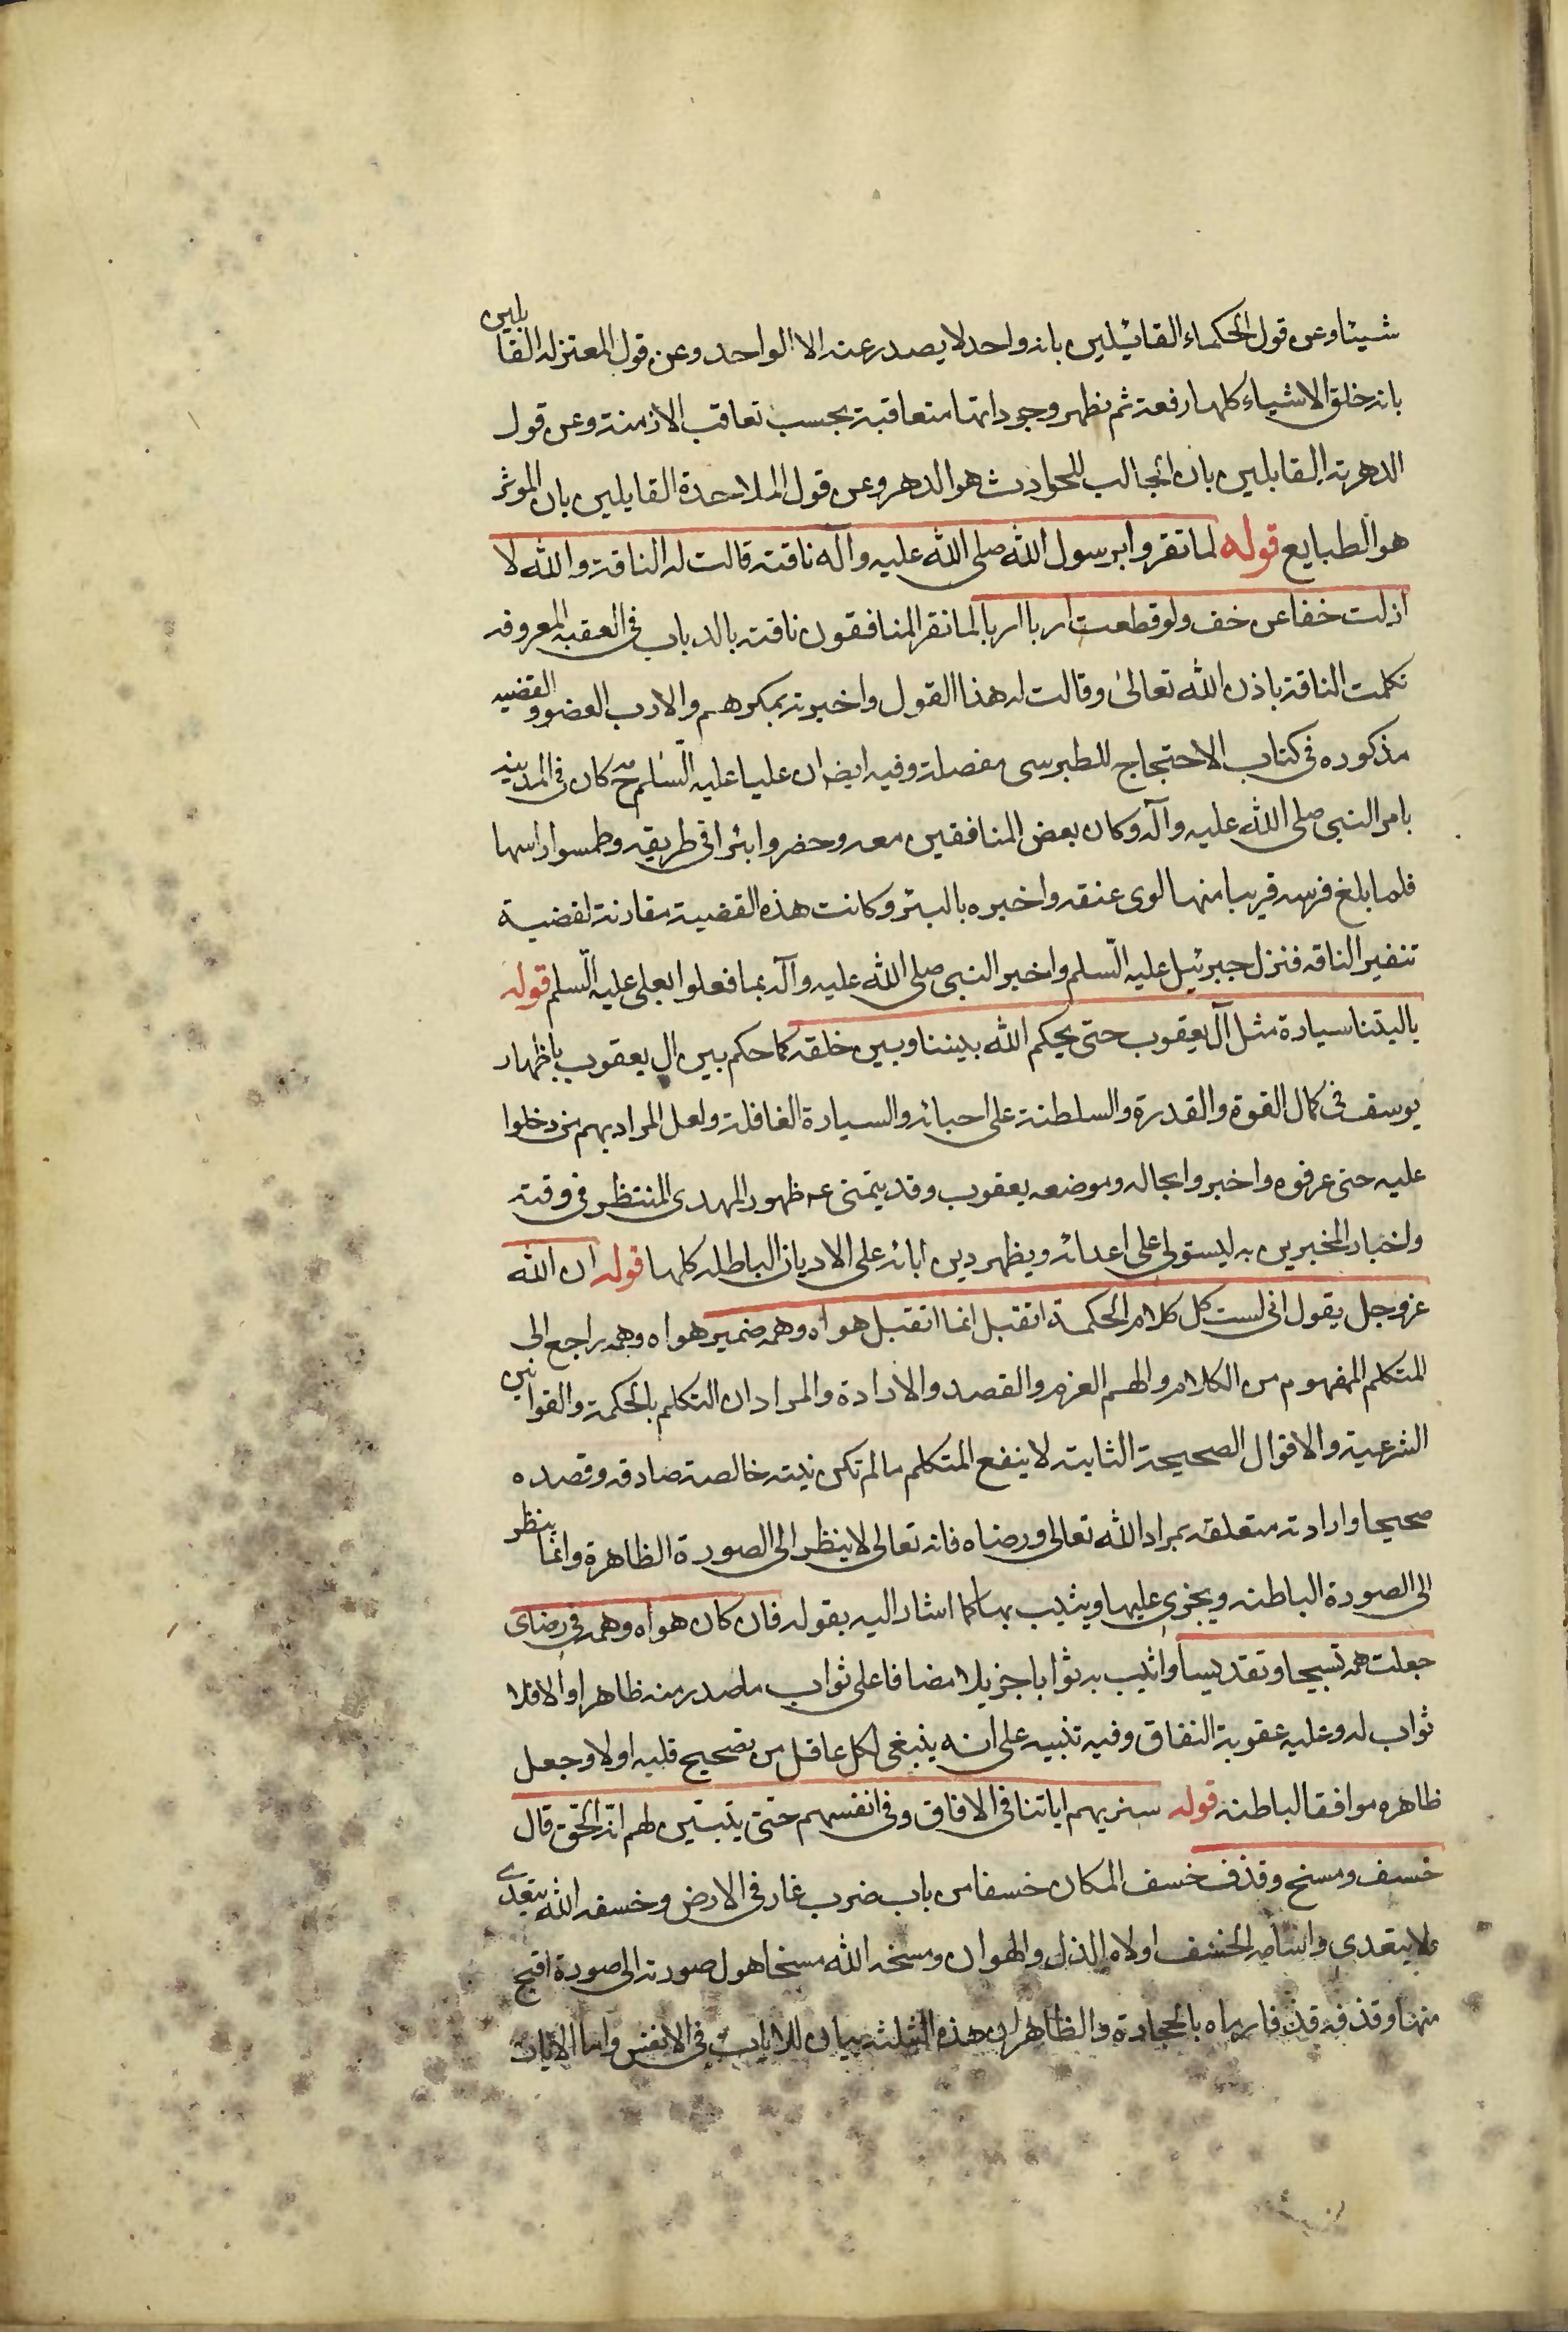 شيئا وعن قول الحكماء القائلين بانه واحد لا يصدر عنه الا الواحد وعن قول المعتزله القايلين
بانه خلق الاشياء كلها دفعة ثم يظهر وجوداتها متعاقبة بحسب تعاقب الازمنة وعن قول
الدهرية القايلين بان الجالب للحوادث هو الدهر وعن قول الملاحدة القايلين بان الموثر
هو الطبايع قوله لما نقروا برسول الله صلى الله عليه وآله ناقته قالت له الناقة والله لا
ازلت خفا عن خف ولو قطعت اربا اربا لما نقر المنافقون ناقته بالدباب في العقبة المعروفه
تكلمت الناقة باذن الله تعالى وقالت له هذا القول واخبرته بمكرهم والارب العضو والقضيه
مذكوره في كتاب الاحتجاج للطبرسي مفصلة وفيه ايضا ان عليا عليه السّلم ح كان في المدينه
بامر النبي صلى الله عليه وآله وكان بعض المنافقين معه وحفروا بئرا في طريقه وطمسوا راسها
فلما بلغ فرسه قريبا منها لوى عنقه واخبره بالبئر وكانت هذه القضية مقارنة لقضية
تنفير الناقه فنزل جبرئيل عليه السّلم واخبر النبي صلى الله عليه وآله بما فعلوا بعلى عليه السّلم قوله
ياليتنا سيارة مثل آل يعقوب حتى يحكم الله بيننا وبين خلقه كما حكم بين ال يعقوب باظهار
يوسف في كمال القوة والقدرة والسلطنة على احبائه والسيارة القافلة ولعل المراد بهم من دخلوا
عليه حتى عرفوه واخبروا بحاله وموضعه يعقوب وقد يتمنى عه ظهور المهدى المنتظر في وقته
واخبار المخبرين به ليستولى على اعدائه ويظهر دين ابائه على الاديان الباطله كلها قوله ان الله
عزوجل يقول انى لست كل كلام الحكمة اتقبل انما اتقبل هواه وهمه ضمير هواه وهمه راجع الى
المتكلم المفهوم من الكلام والهم العزم والقصد والارادة والمراد ان التكلم بالحكمة والقوانين
الشرعية والاقوال الصحيحة الثابتة لا ينفع المتكلم ما لم تكن نيته خالصة صادقه وقصده
صحيحا وارادته متعلقه بمراد الله تعالى ورضاه فانه تعالى لا ينظر الى الصورة الظاهرة وانما ينظر
الى الصورة الباطنه ويجزى عليها ويثيب بها كما اشار اليه بقوله فان كان هواه وهمه في رضاى
جعلت همه تسبيحا وتقديسا واثيب به ثوابا جزيلا مضافا على ثواب ما صدر منه ظاهرا والا فلا
ثواب له وعليه عقوبة النفاق وفيه تنبيه على انه ينبغى لكل عاقل من تصحيح قلبه اولا وجعل
ظاهره موافقا لباطنه قوله سنريهم اياتنا في الافاق وفي انفسهم حتى يتبيّن لهم انّه الحق قال
خسف ومسخ وقذف خسف المكان خسفا من باب ضرب غار في الارض وخسفه الله يتعدى
ولا يتعدى واسامه الخسف اولاه الذل والهوان ومسخه الله مسخا حول صورته الى صورة اقبح
منها وقذفه قذفا رماه بالحجارة والظاهر ان هذه الثلثه بيان للايات في الانفس واما الايات